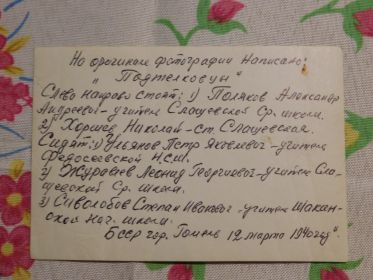 На оригинале фотографии написано:
"Подтелковцы"
Слево направо стоят: 1) Поляков Александр
Андреевич - учитель Слащевской Ср. школы.
2) Хоршев Николай - ст. Слащевская.
Сидят: 1) Ульянов Петр Яковлевич - учитель
Федосеевской Н.С.Ш.
2) Журавлев Леонид Георгиевич - учитель Сла-
щевской Ср. школы.
3) Сиволобов Степан Иванович - учитель Шакин-
ской Нач. школы.
БССР гор. Гомель 12 марта 1940 год"